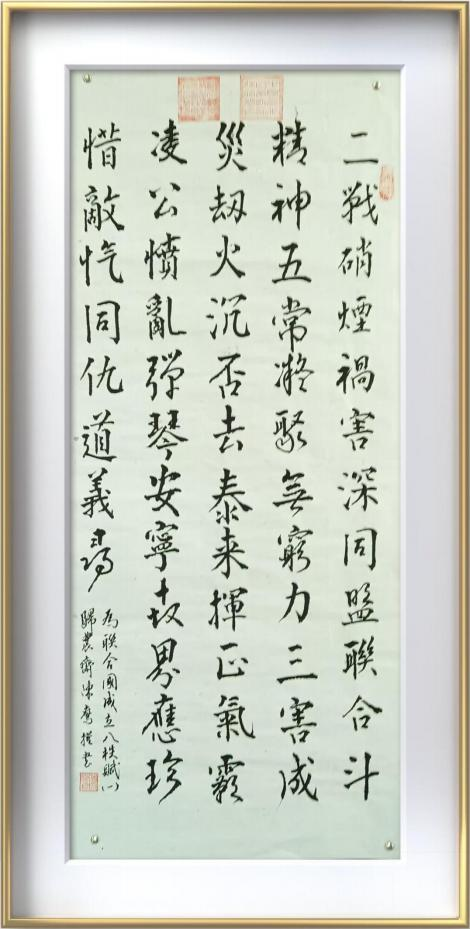 二戦硝煙禍害深同盟聯合斗
精神五常凝聚無窮力三害成
災刼火沉否去泰来揮正氣霸
凌公憤亂彈琴安寧世界應珍
惜敵忾同仇道義尋
為聯合國成立八秩賦以
歸農齋陳撰書